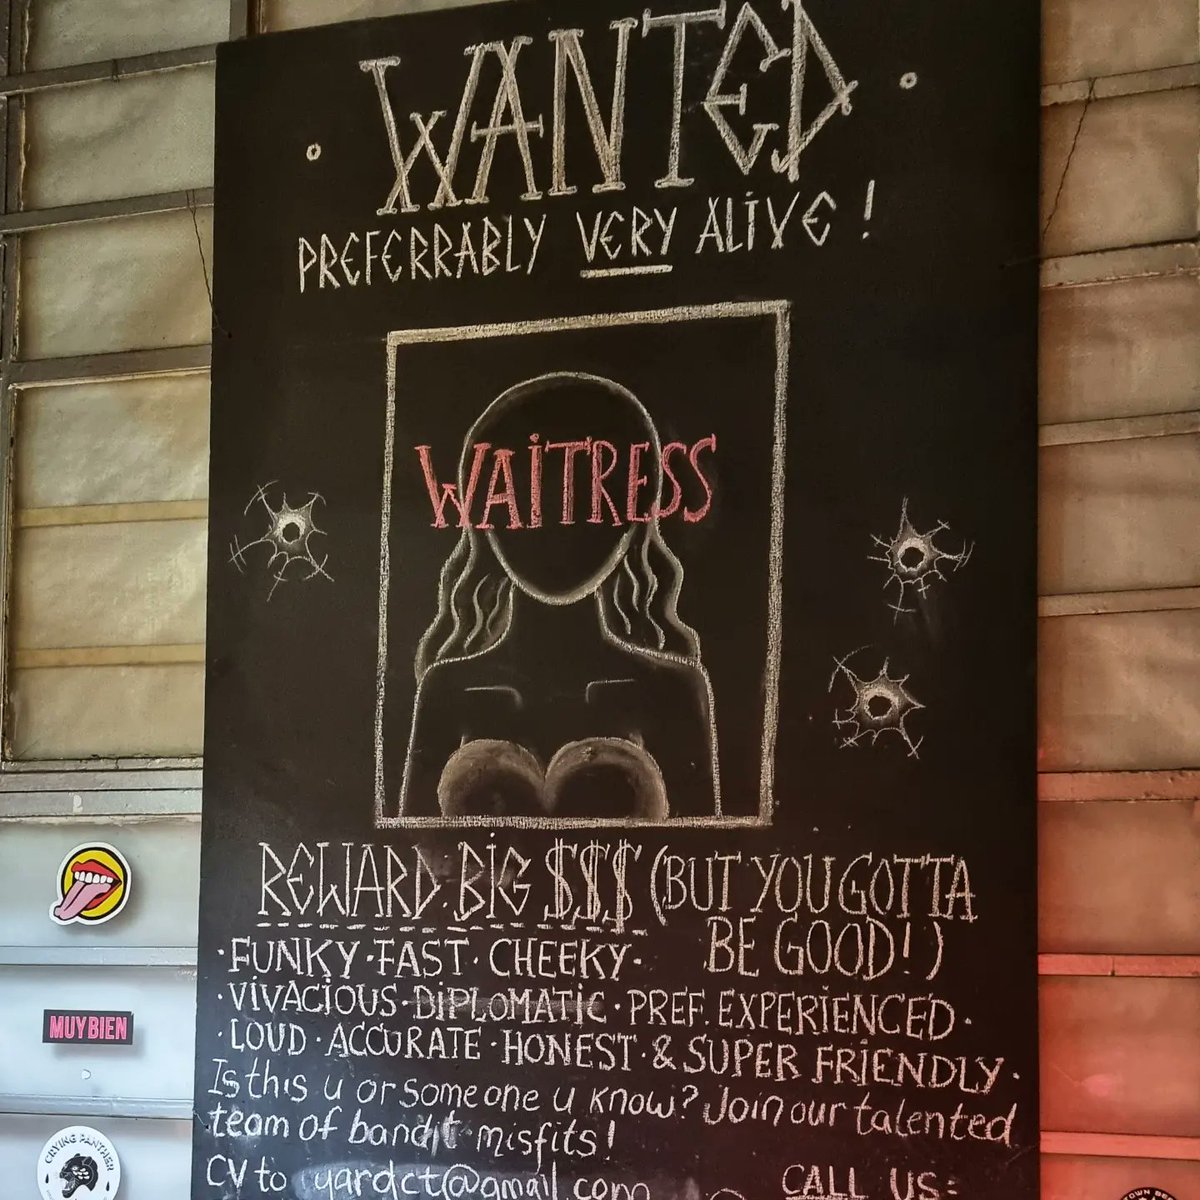 WANTED
PREFERRABLY VERY ALIVE!
WAITRESS
REWARD. BIG $$$ (BUT YOU GOTTA
BE GOOD!)
· FUNKY · FAST · CHEEKY ·
· VIVACIOUS · DIPLOMATIC · PREF. EXPERIENCED ·
· LOUD · ACCURATE · HONEST · & SUPER FRIENDLY ·
Is this u or someone u know? Join our talented
team of bandit misfits!
CV to yardct@gmail.com
CALL US:
MUY BIEN
CRYING PANTHER